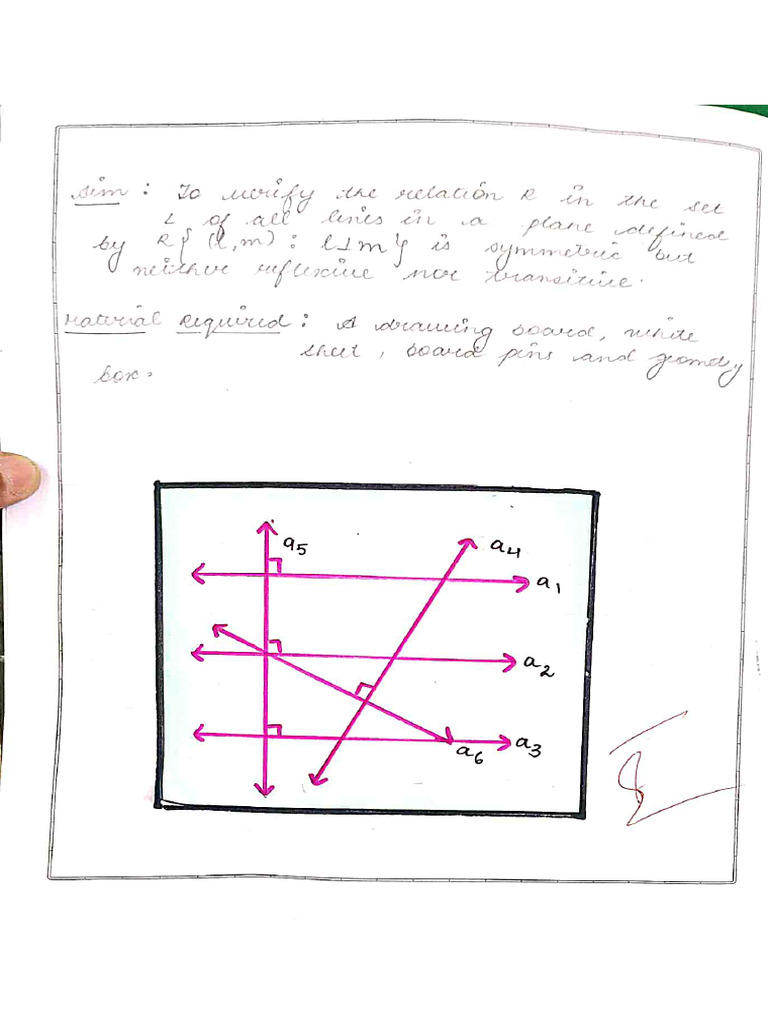 Aim : To verify the relation R in the set
L of all lines in a plane defined
by R { (l, m) : l ⊥ m } is symmetric but
neither reflexive nor transitive.
Material Required : A drawing board, white
sheet , board pins and geometry
box.
a5
a4
a1
a2
a3
a6